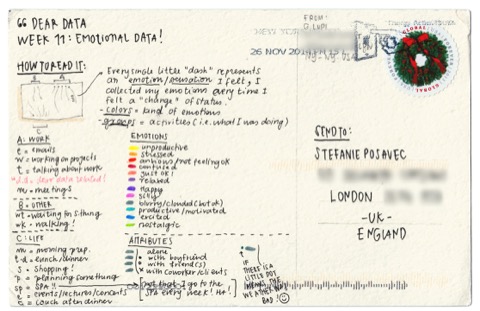 DEAR DATA
WEEK 11: EMOTIONAL DATA!
HOW TO READ IT:
Every single little "dash" represents
an "emotion/sensation I felt, I
collected my emotions every time I
felt a "change" of status.
- colors = kind of emotions
- groups = activities (i.e. what I was doing)
A: WORK
e = emails
w = working on projects
t = talking about work
d.d. = dear data related!
m = meetings
B = OTHER
wt = waiting for s.thing
wk = walking!
C: LIFE
m = morning prep.
l-d = lunch/dinner
s = shopping!
p = planning something
sp = SPA!!
e = events/lectures/concerts
c = couch after dinner
EMOTIONS
unproductive
stressed
anxious/not feeling ok
confused
just ok!
relaxed
happy
productive/motivated
excited
nostalgic
ATTRIBUTES
alone
with boyfriend
with friend(s)
with coworker/clients
not that I go to the
SPA every week! Ha!
IF
THERE IS A
LITTLE DOT
MEANS
WEATHER WAS
BAD!
FROM:
G. LUPI
NEW YORK
26 NOV 2014
GLOBAL
SEND TO:
STEFANIE POSAVEC
LONDON
-UK-
ENGLAND